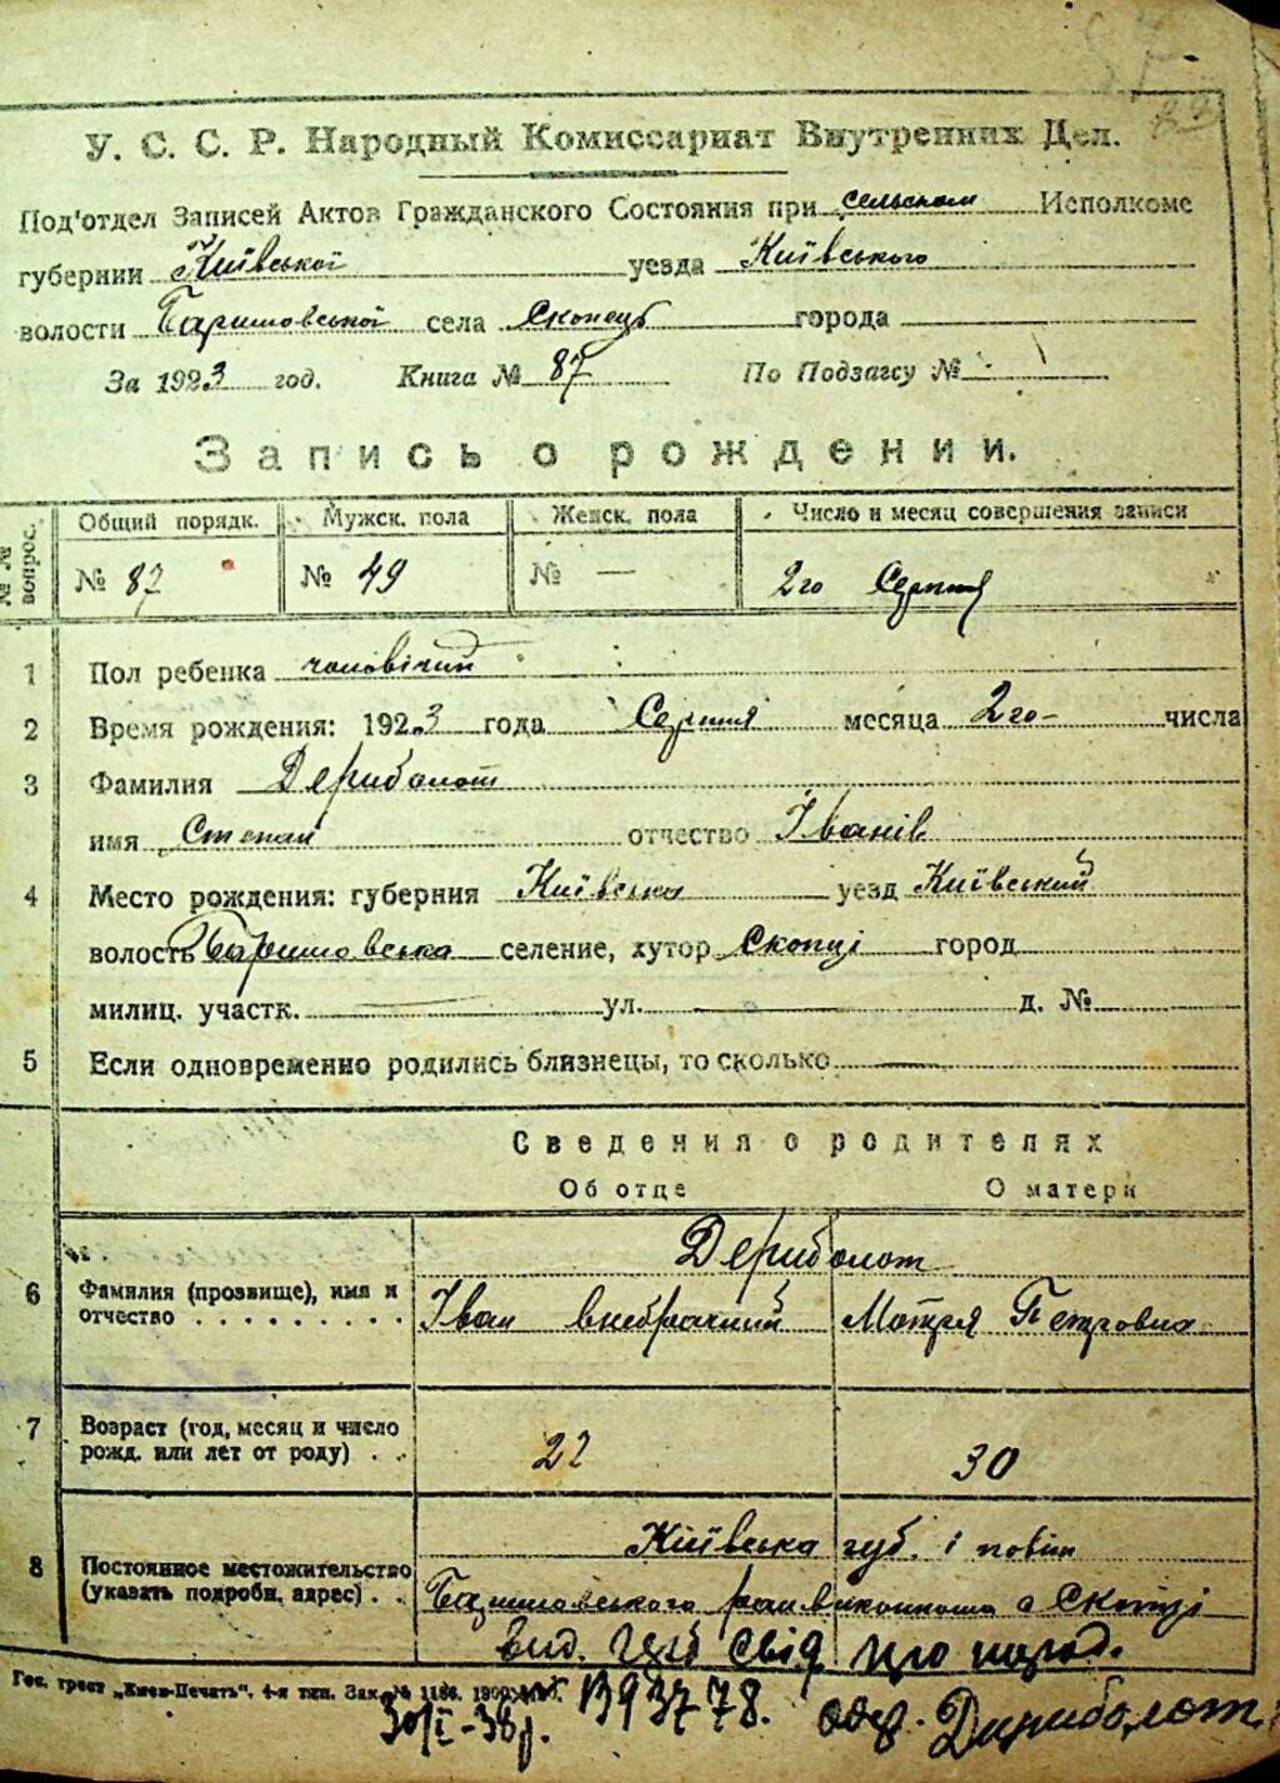 У. С. С. Р. Народный Комиссариат Внутренних Дел.
Под'отдел Записей Актов Гражданского Состояния при сельском Исполкоме
губернии Київської уезда Київського
волости Баришовської села Скопець города
За 1923 год. Книга № 87 По Подзагсу №
Запись о рождении.
№№ вопрос. Общий порядк. Мужск. пола Женск. пола Число и месяц совершения записи
№ 87 № 49 № — 2го Серпня
1 Пол ребенка чоловічий
2 Время рождения: 1923 года Серпня месяца 2го- числа
3 Фамилия Дериболот
имя Степан отчество Іванів
4 Место рождения: губерния Київська уезд Київський
волость Баришовська селение, хутор Скопці город
милиц. участк. ул. д. №
5 Если одновременно родились близнецы, то сколько
Сведения о родителях
Об отце О матери
Дериболот
6 Фамилия (прозвище), имя и
отчество . . . . . . . . .
Іван внебрачний Мотря Петровна
7 Возраст (год, месяц и число
рожд. или лет от роду) . .
22 30
Київська губ. і повіт
8 Постоянное местожительство
(указать подробн. адрес) . .
Баришовського райвиконкома с Скопці
вид. свід про народ.
Гос. трест „Киев-Печать“, 4-я тип. Зак. № 1186.
30/I-38р. 193778. одер. Дериболот